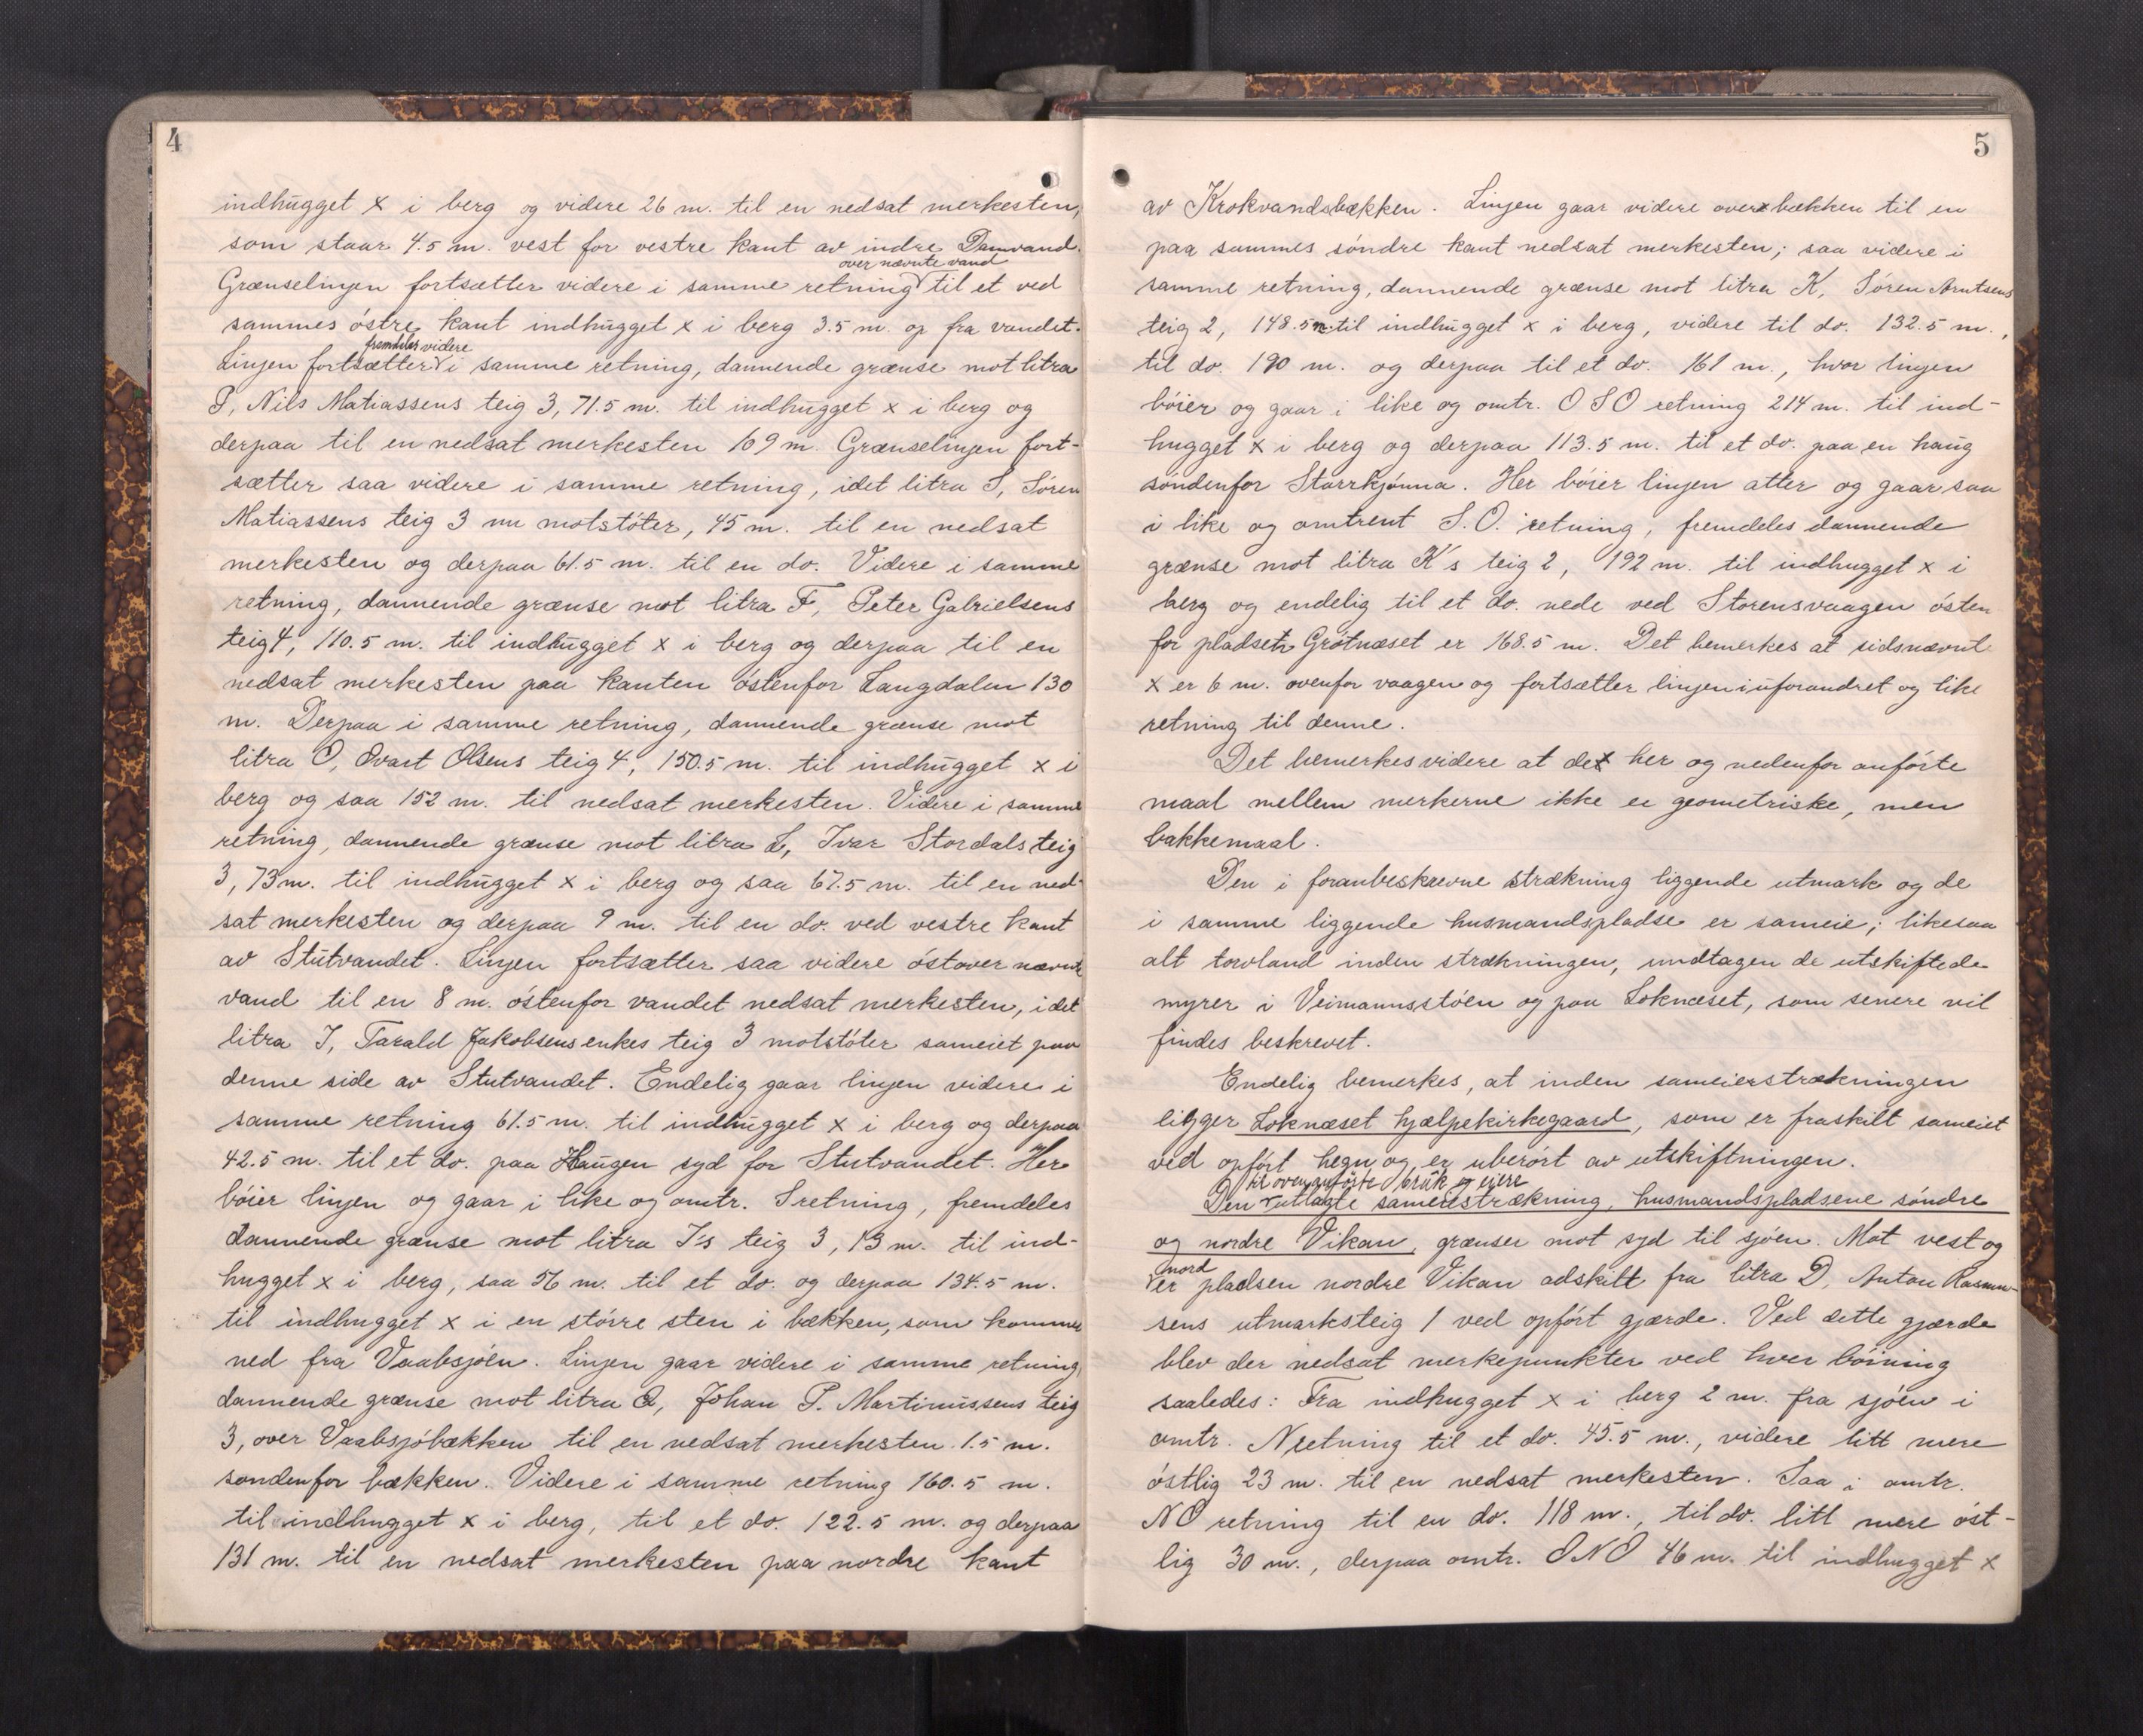 4
indhugget x i berg og videre 26 m. til en nedsat merkesten,
som staar 4.5 m. vest for vestre kant av indre Damvand.
over nævnte vand
Grænselinjen fortsætter videre i samme retning til et ved
sammes östre kant indhugget x i berg 3.5 m. op fra vandet.
fremdeles videre
Linjen fortsætter i samme retning, dannende grænse mot litra
P, Nils Matiassens teig 3, 71.5 m. til indhugget x i berg og
derpaa til en nedsat merkesten 109 m. Grænselinjen fort-
sætter saa videre i samme retning, idet litra S, Sören
Matiassens teig 3 nu motstöter, 45 m. til en nedsat
merkesten og derpaa 61.5 m. til en do. Videre i samme
retning, dannende grænse mot litra F, Peter Gabrielsens
teig 4, 110.5 m. til indhugget x i berg og derpaa til en
nedsat merkesten paa kanten östenfor Langdalen 130
m. Derpaa i samme retning, dannende grænse mot
litra O, Evart Olsens teig 4, 150.5 m. til indhugget x i
berg og saa 152 m. til nedsat merkesten. Videre i samme
retning, dannende grænse mot litra L, Ivar Stordals teig
3, 73 m. til indhugget x i berg og saa 67.5 m. til en ned-
sat merkesten og derpaa 9 m. til en do. ved vestre kant
av Stutvandet. Linjen fortsætter saa videre östover nævnte
vand til en 8 m. östenfor vandet nedsat merkesten, idet
litra I, Tarald Jakobsens enkes teig 3 motstöter sameiet paa
denne side av Stutvandet. Endelig gaar linjen videre i
samme retning 61.5 m. til indhugget x i berg og derpaa
42.5 m. til et do. paa Haugen syd for Stutvandet. Her
böier linjen og gaar i like og omtr. S retning, fremdeles
dannende grænse mot litra I's teig 3, 13 m. til ind-
hugget x i berg, saa 56 m. til et do. og derpaa 134.5 m.
til indhugget x i en större sten i bækken, som kommer
ned fra Vaabsjöen. Linjen gaar videre i samme retning,
dannende grænse mot litra Q, Johan P. Martinussens teig
3, over Vaabsjöbækken til en nedsat merkesten 1.5 m.
sondenfor bækken. Videre i samme retning 160.5 m.
til indhugget x i berg, til et do. 122.5 m. og derpaa
131 m. til en nedsat merkesten paa nordre kant
5
av Krokvandsbækken. Linjen gaar videre over bækken til en
paa sammes söndre kant nedsat merkesten; saa videre i
samme retning, dannende grænse mot litra K, Sören Arntsens
teig 2, 148.5 m til indhugget x i berg, videre til do. 132.5 m.,
til do. 190 m. og derpaa til et do. 161 m., hvor linjen
böier og gaar i like og omtr. O S O retning 214 m. til ind-
hugget x i berg og derpaa 113.5 m. til et do. paa en haug
söndenfor Starrkjönna. Her böier linjen atter og gaar saa
i like og omtrent S.O. retning, fremdeles dannende
grænse mot litra K's teig 2, 192 m. til indhugget x i
berg og endelig til et do. nede ved Storensvaagen östen
for pladsen Grötnæset er 168.5 m. Det bemerkes at sidsnævnte
x er 6 m. ovenfor vaagen og fortsætter linjen i uforandret og like
retning til denne.
Det bemerkes videre at de her og nedenfor anförte
maal mellem merkerne ikke er geometriske, men
bakkemaal.
Den i foranbeskrevne strækning liggende utmark og de
i samme liggende husmandspladse er sameie; likesaa
alt torvland inden strækningen, undtagen de utskiftede
myrer i Veimannsstöen og paa Loknæset, som senere vil
findes beskrevet.
Endelig bemerkes, at inden sameierstrækningen
ligger Loknæset hjælpekirkegaard, som er fraskilt sameiet
ved opfört hegn og er uberört av utskiftningen.
til ovenanförte bruk og eiere
Den utlagte sameiestrækning, husmandspladsene söndre
og nordre Vikan, grænser mot syd til sjöen. Mot vest og
nord
er pladsen nordre Vikan adskilt fra litra D, Anton Rasmus-
sens utmarksteig 1 ved opfört gjærde. Ved dette gjærde
blev der nedsat merkepunkter ved hver böining
saaledes: Fra indhugget x i berg 2 m. fra sjöen i
omtr. N retning til et do. 45.5 m., videre litt mere
östlig 23 m. til en nedsat merkesten. Saa i omtr.
NO retning til en do. 118 m., til do. litt mere öst-
lig 30 m., derpaa omtr. ONO 46 m. til indhugget x